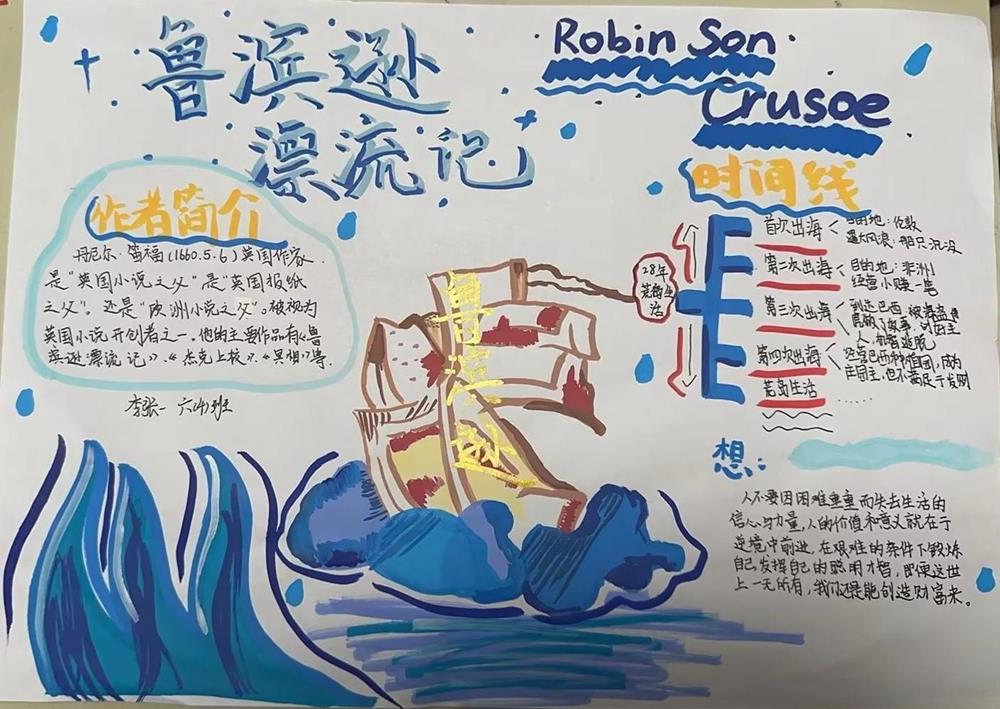 鲁滨逊
漂流记
Robin Son
Crusoe
作者简介
丹尼尔·笛福(1660.5.6)英国作家.
是"英国小说之父"是"英国报纸
之父"。还是"欧洲小说之父"。被视为
英国小说开创者之一。他的主要作品有《鲁
滨逊漂流记》.《杰克上校》.等.
李张一 六(4)班
鲁滨逊
28年
荒岛生
活
时间线
首次出海
目的地:伦敦
遇大风浪:船只沉没
第二次出海
目的地:非洲
经营小赚一笔
第三次出海
到达巴西
人,机智逃脱
第四次出海
经营巴西种植园,成为
庄园主,也不满足于发财
荒岛生活
......
想:
人不要因困难重重而失去生活的
信心与力量,人的价值和意义就在于
逆境中前进,在艰难的条件下锻炼
自己,发挥自己的聪明才智,即便这世
上一无所有,我们还是能创造财富来。